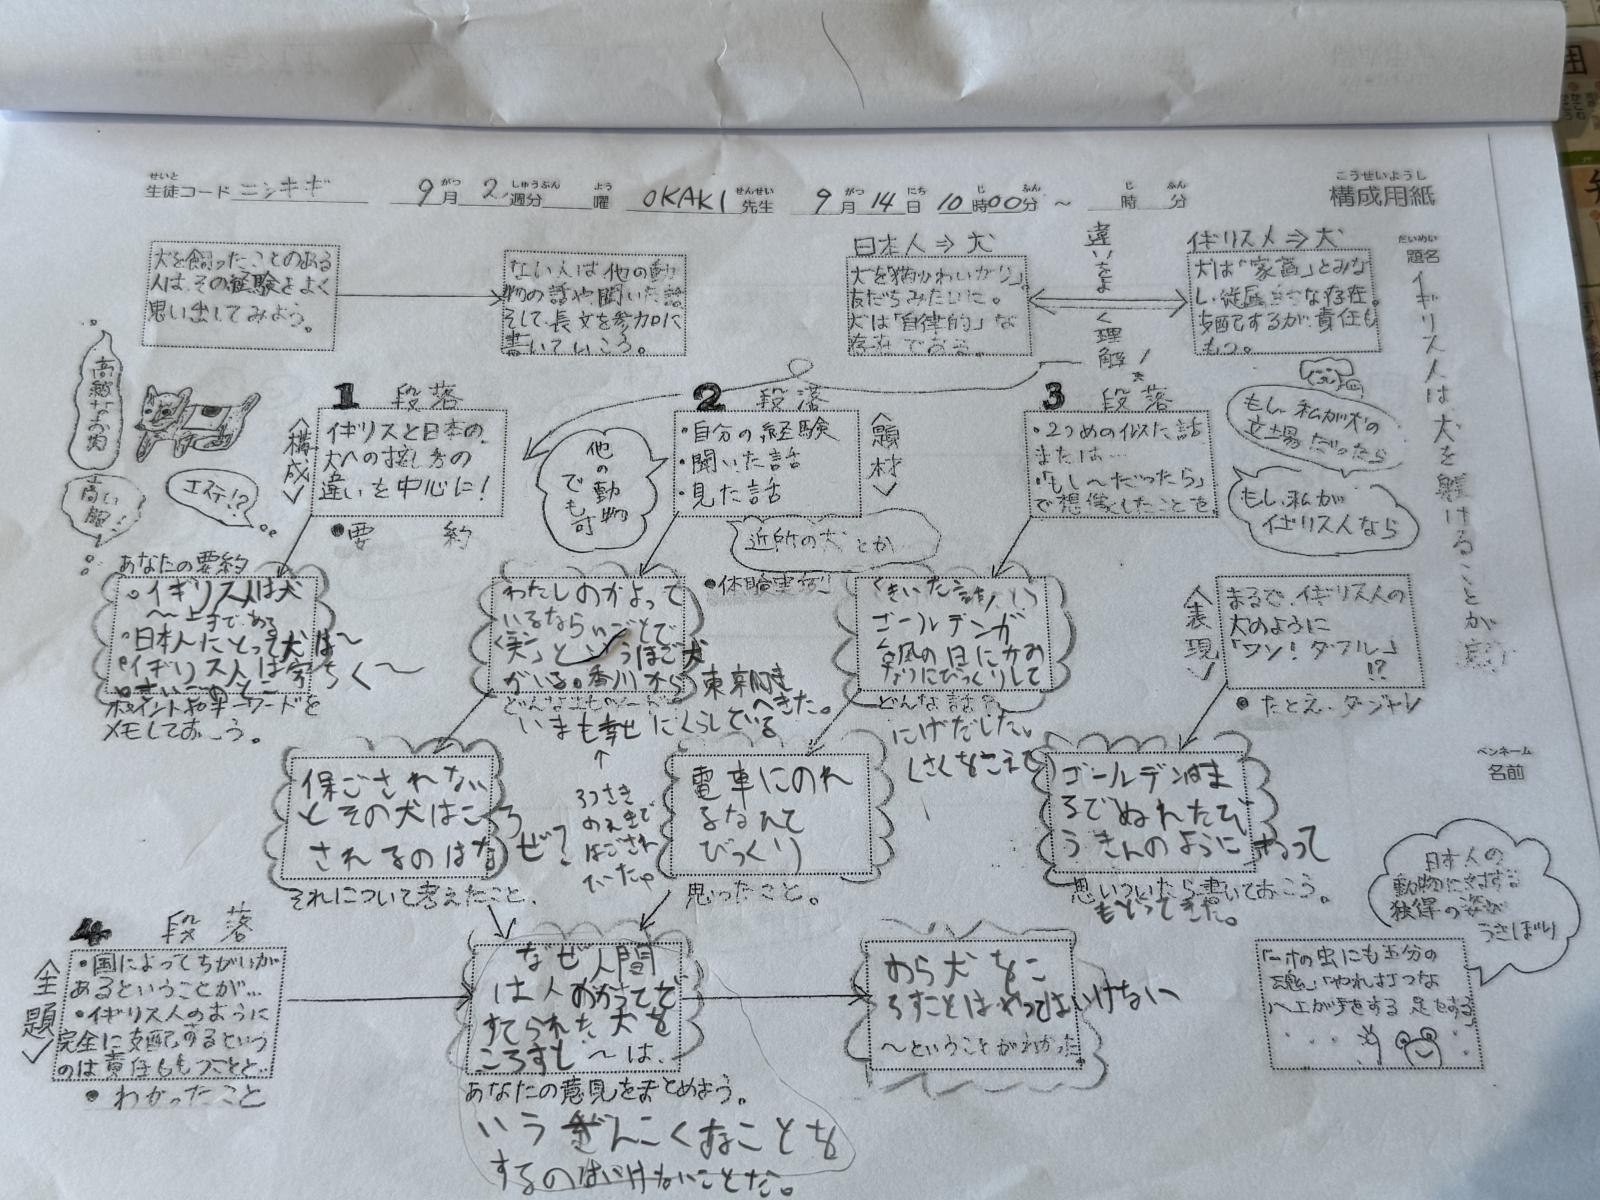 せいと
生徒コード ニシキギ
9月 2週分 曜
がつ しゅうぶん よう
OKAKI 先生
せんせい
9月14日 10時00分 ～ 時 分
がつ にち じ ふん じ ふん
こうせいようし
構成用紙
だいめい
題名
イギリス人は犬を躾けることが
犬を飼ったことのある
人は、その経験をよく
思い出してみよう。
ない人は他の動
物の話や聞いた話
そして、長文を参考に
書いていこう。
日本人⇒犬
犬を猫かわいがり」
友だちみたいに。
犬は「自律的」な
存在である。
違いをよく理解!
イギリス人⇒犬
犬は「家畜」とみな
し、従属的な存在。
支配するが、責任も
もつ。
高級なお肉
高い服!
エステ!?
1 段落
〈構成〉
イギリスと日本の、
犬への接し方の
違いを中心に!
●要約
他の動物でも可
2 段落
・自分の経験
・聞いた話
・見た話
〈題材〉
近所の犬とか…
●体験実例
3 段落
・2つめの似た話
または…
・「もし〜だったら」
で想像したことを。
もし、私が犬の
立場だったら
もし、私が
イギリス人なら
あなたの要約
・イギリス人は犬
〜上手である
・日本人にとって犬は〜
・イギリス人は家ちく〜
ポイントやキーワードを
メモしておこう。
わたしのかよって
いるならいごとで
「実」というほご犬
がいる。香川から東京に
いまも幸せにくらしている
↑
保ごされない
とその犬はころ
されるのはなぜ?
それについて考えたこと。
〈きいた話〉
ゴールデンが
台風の日にかみ
なりにびっくりして
どんな話
にげだした。
さくをこえて
電車にのれ
るなんて
びっくり
思ったこと。
〈表現〉
まるで、イギリス人の
犬のように
「ワン!ダフル」
!?
●たとえ、ダジャレ
ゴールデンはま
るでぬれたぞ
うきんのようになって
思いついたら書いておこう。
もどってきた。
ペンネーム
名前
4 段落
〈主題〉
・国によってちがいが
あるということが…
・イギリス人のように
完全に支配するという
のは責任ももつことと、
●わかったこと
なぜ人間
は人
すてられた犬を
ころすと〜は、
あなたの意見をまとめよう。
いうざんこくなことを
するのはいけないことだ。
から犬をこ
ろすことはやってはいけない
〜ということがわかった。
日本人の
動物に対する
独得の姿が
うきぼり
「一寸の虫にも五分の
魂」「やれ打つな
ハエが手をする 足をする」